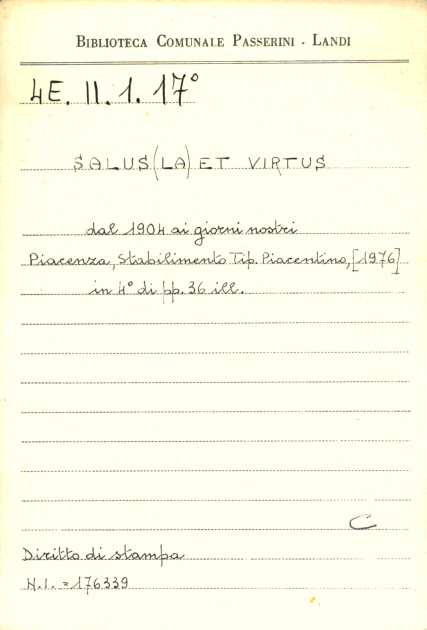 BIBLIOTECA COMUNALE PASSERINI - LANDI
4E. II. 1. 17°
SALUS (LA) ET VIRTUS
dal 1904 ai giorni nostri
Piacenza, Stabilimento Tip. Piacentino, [1976]
in 4° di pp. 36 ill.
C
Diritto di stampa
N.I. = 176339